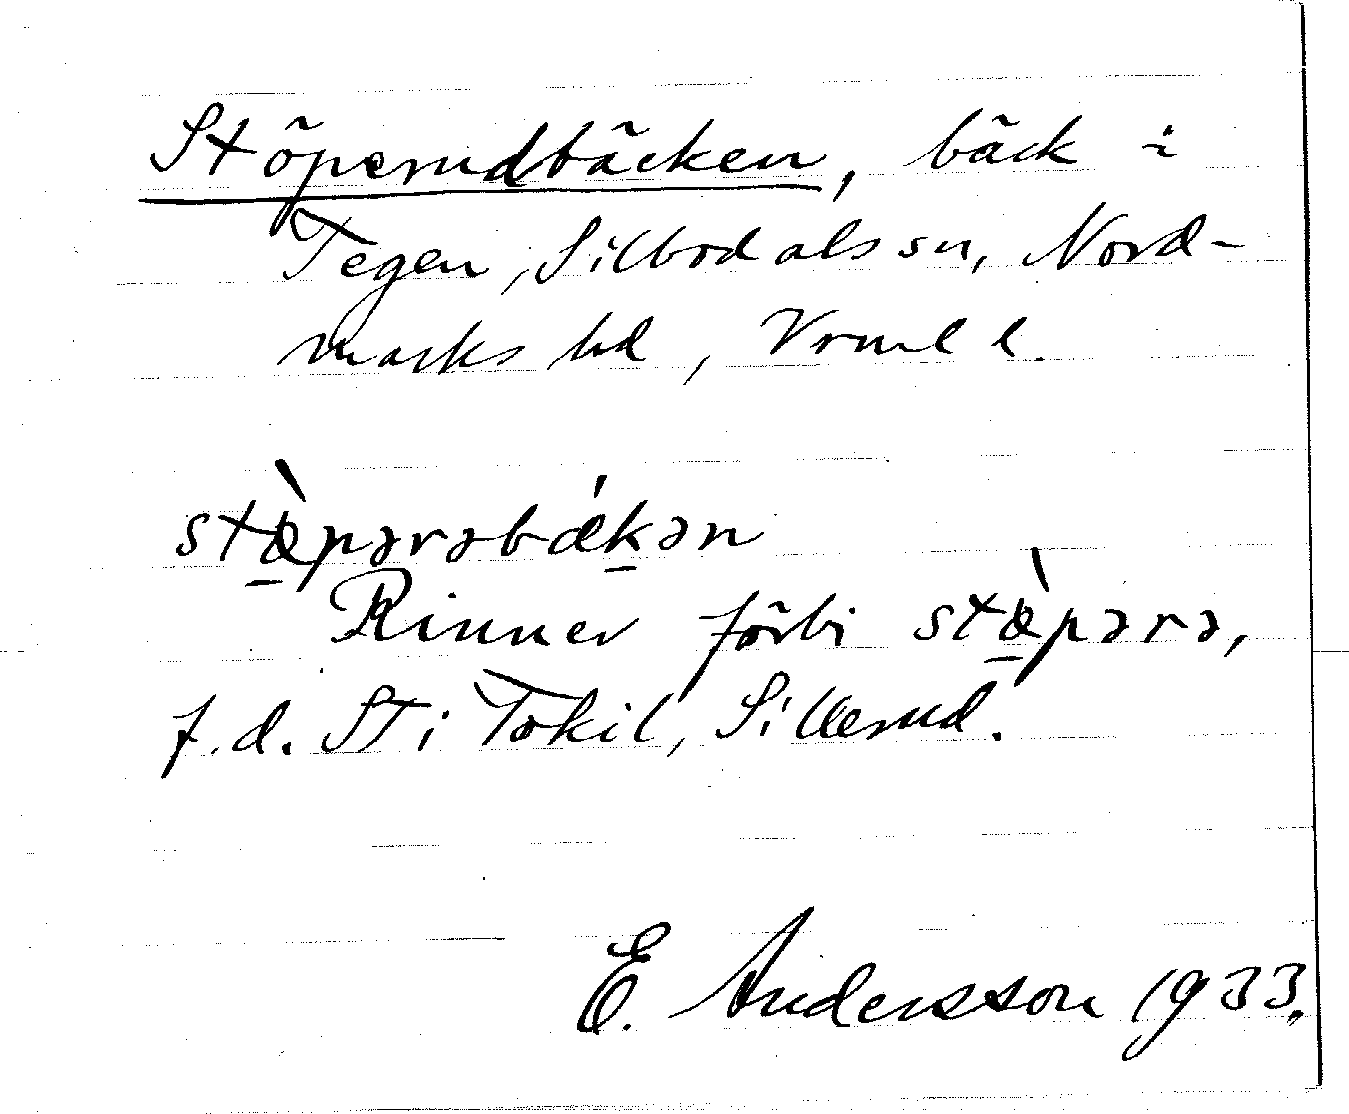 Stöperudbäcken, bäck i
Tegen, Silbodals sn, Nord-
marks hd, Vrml l.
stæ̀pərəbǽkən
Rinner förbi stæ̀pərə,
f.d. ST i Tokil, Sillerud.
E. Andersson 1933.